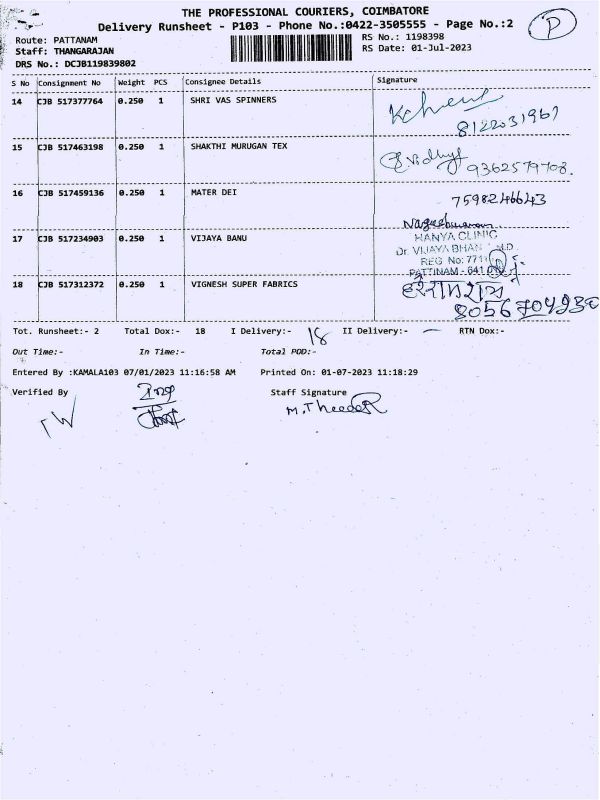 THE PROFESSIONAL COURIERS, COIMBATORE
Delivery Runsheet - P103 - Phone No.:0422-3505555 - Page No.:2
P
Route: PATTANAM
RS No.: 1198398
Staff: THANGARAJAN
RS Date: 01-Jul-2023
DRS No.: DCJB119839802
S No Consignment No Weight PCS Consignee Details Signature
14 CJB 517377764 0.250 1 SHRI VAS SPINNERS
8122031967
15 CJB 517463198 0.250 1 SHAKTHI MURUGAN TEX
Vidhya 9362579708.
16 CJB 517459136 0.250 1 MATER DEI
7598246643
17 CJB 517234903 0.250 1 VIJAYA BANU
HANYA CLINIC
Dr. VIJAYA BHAN M.D
REG No: 771
PATTINAM - 641 0
18 CJB 517312372 0.250 1 VIGNESH SUPER FABRICS
8056704930
Tot. Runsheet:- 2 Total Dox:- 18 I Delivery:- 18 II Delivery:- — RTN Dox:-
Out Time:- In Time:- Total POD:-
Entered By :KAMALA103 07/01/2023 11:16:58 AM Printed On: 01-07-2023 11:18:29
Verified By Staff Signature